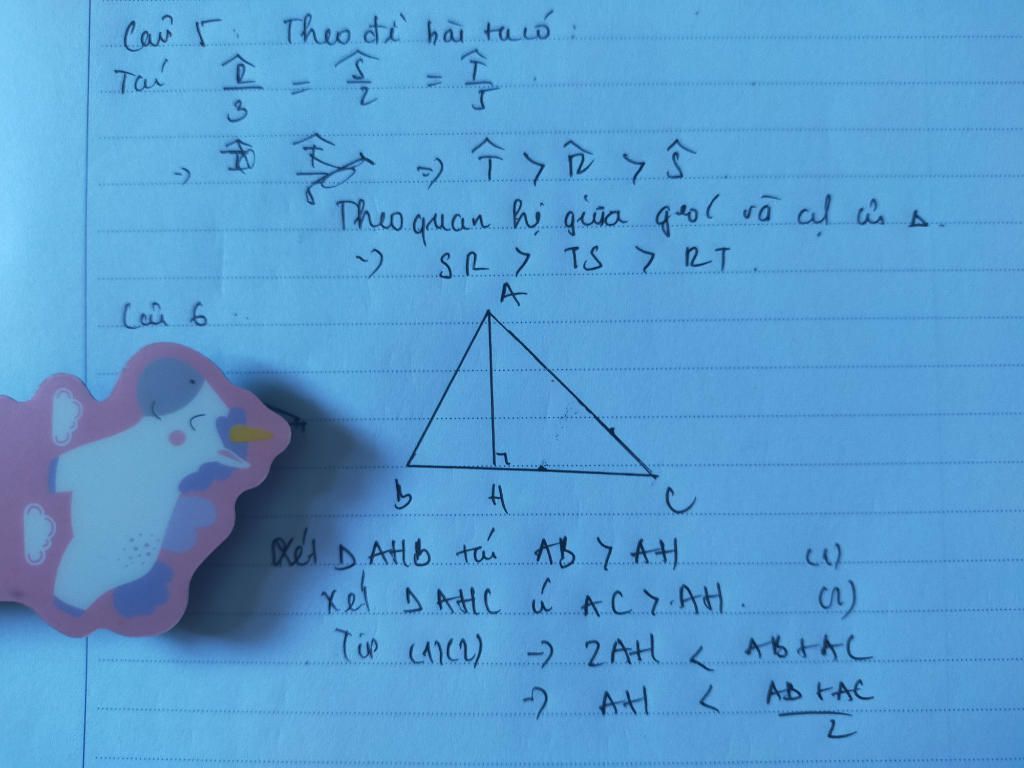 Câu 5: Theo đề bài ta có:
Ta có R̂/3 = Ŝ/2 = T̂/5.
=> T̂ > R̂ > Ŝ
Theo quan hệ giữa góc và cạnh của Δ.
=> SR > TS > RT.
Câu 6
A
B H C
Xét Δ AHB ta có AB > AH (1)
Xét Δ AHC có AC > AH. (2)
Từ (1)(2) => 2AH < AB+AC
=> AH < AB+AC/2